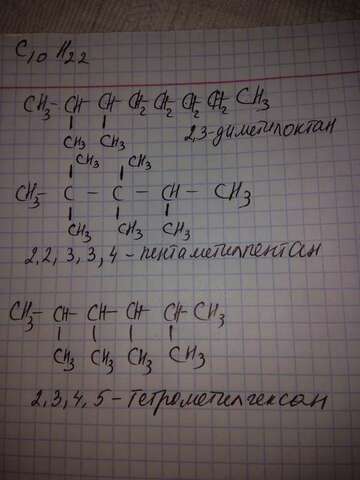 C10 H22
CH3 - CH - CH - CH2 - CH2 - CH2 - CH2 - CH3
CH3 CH3
2,3-диметилоктан
CH3 CH3
CH3 - C - C - CH - CH3
CH3 CH3 CH3
2, 2, 3, 3, 4 - пентаметилпентан
CH3 - CH - CH - CH - CH - CH3
CH3 CH3 CH3 CH3
2, 3, 4, 5 - Тетрометилгексан